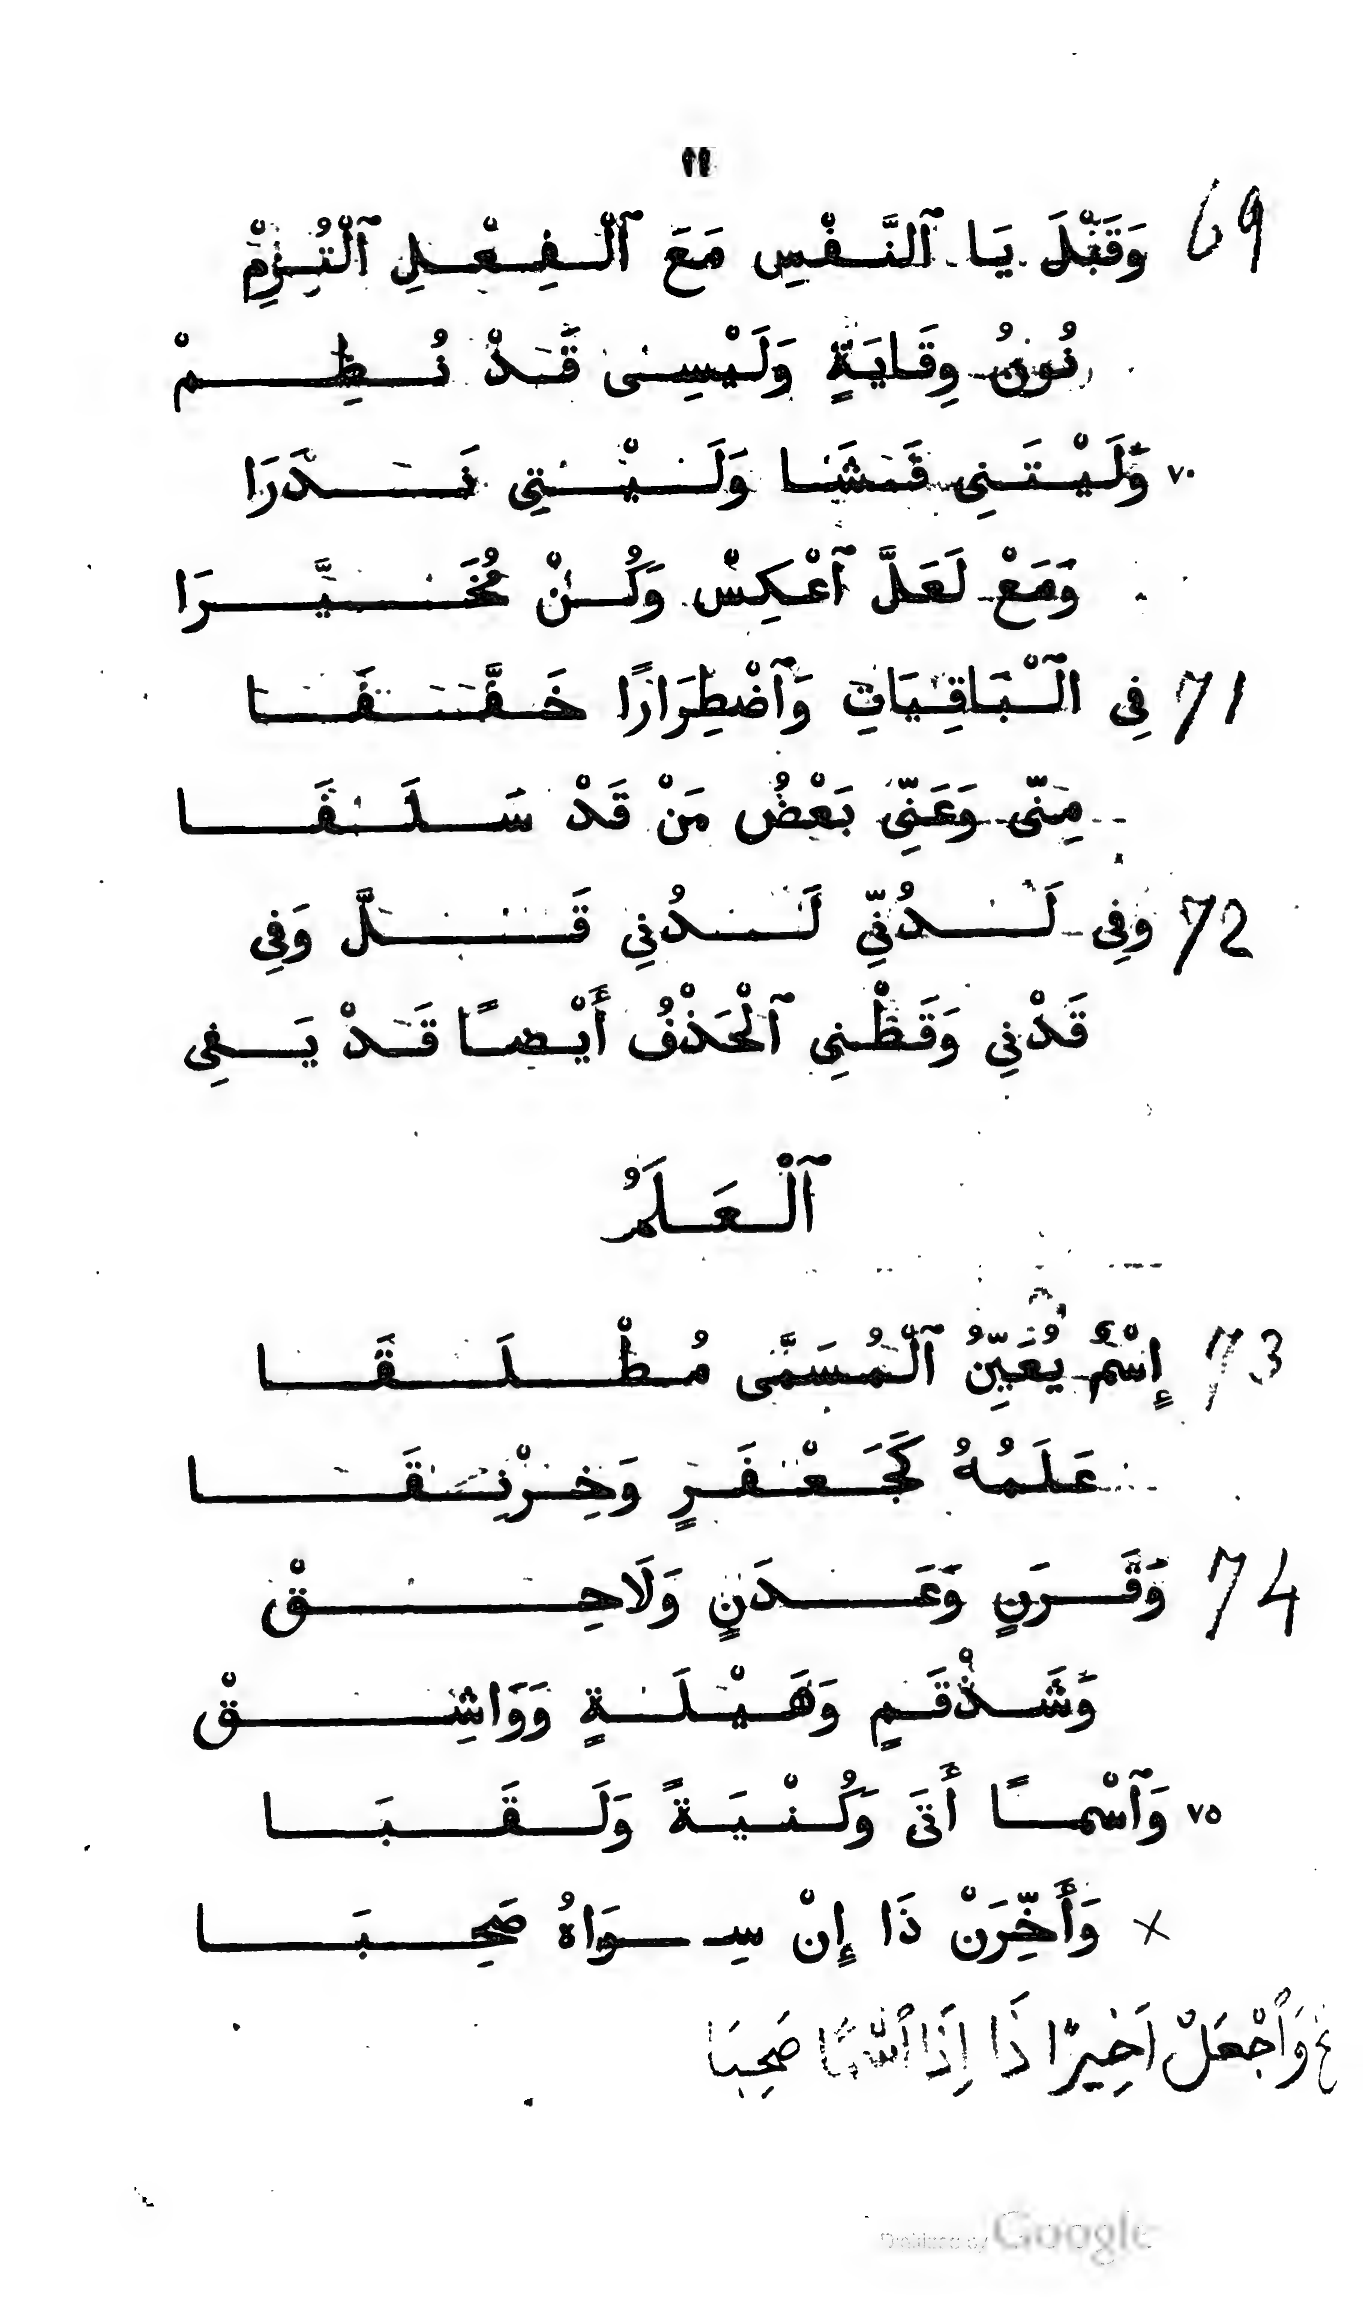 ١١
69 وَقَبْلَ يَا ٱلنَّفْسِ مَعَ ٱلْفِعْلِ ٱلْتُزِمْ
نُونُ وِقَايَةٍ وَلَيْسِى قَدْ نُظِمْ
٧٠ وَلَيْتَنِى فَشَا وَلَيْتِى نَدَرَا
وَمَعْ لَعَلَّ ٱعْكِسْ وَكُنْ مُخَيَّرَا
71 فِى ٱلْبَاقِيَاتِ وَٱضْطِرَارًا خَفَّفَا
مِنِّى وَعَنِّى بَعْضُ مَنْ قَدْ سَلَفَا
72 وَفِى لَدُنِّى لَدُنِى قَلَّ وَفِى
قَدْنِى وَقَطْنِى ٱلْحَذْفُ أَيْضًا قَدْ يَفِى
ٱلْعَلَمُ
73 إِسْمٌ يُعَيِّنُ ٱلْمُسَمَّى مُطْلَقَا
عَلَمُهُ كَجَعْفَرٍ وَخِرْنِقَا
74 وَقَرَنٍ وَعَدَنٍ وَلَاحِقْ
وَشَذْقَمٍ وَهَيْلَةٍ وَوَاشِقْ
٧٥ وَٱسْمًا أَتَى وَكُنْيَةً وَلَقَبَا
× وَأَخِّرَنْ ذَا إِنْ سِوَاهُ صَحِبَا
خ وَٱجْعَلْ اَخِيرًا ذَا اِذَا ٱسْمًا صَحِبَا
Digitized by Google